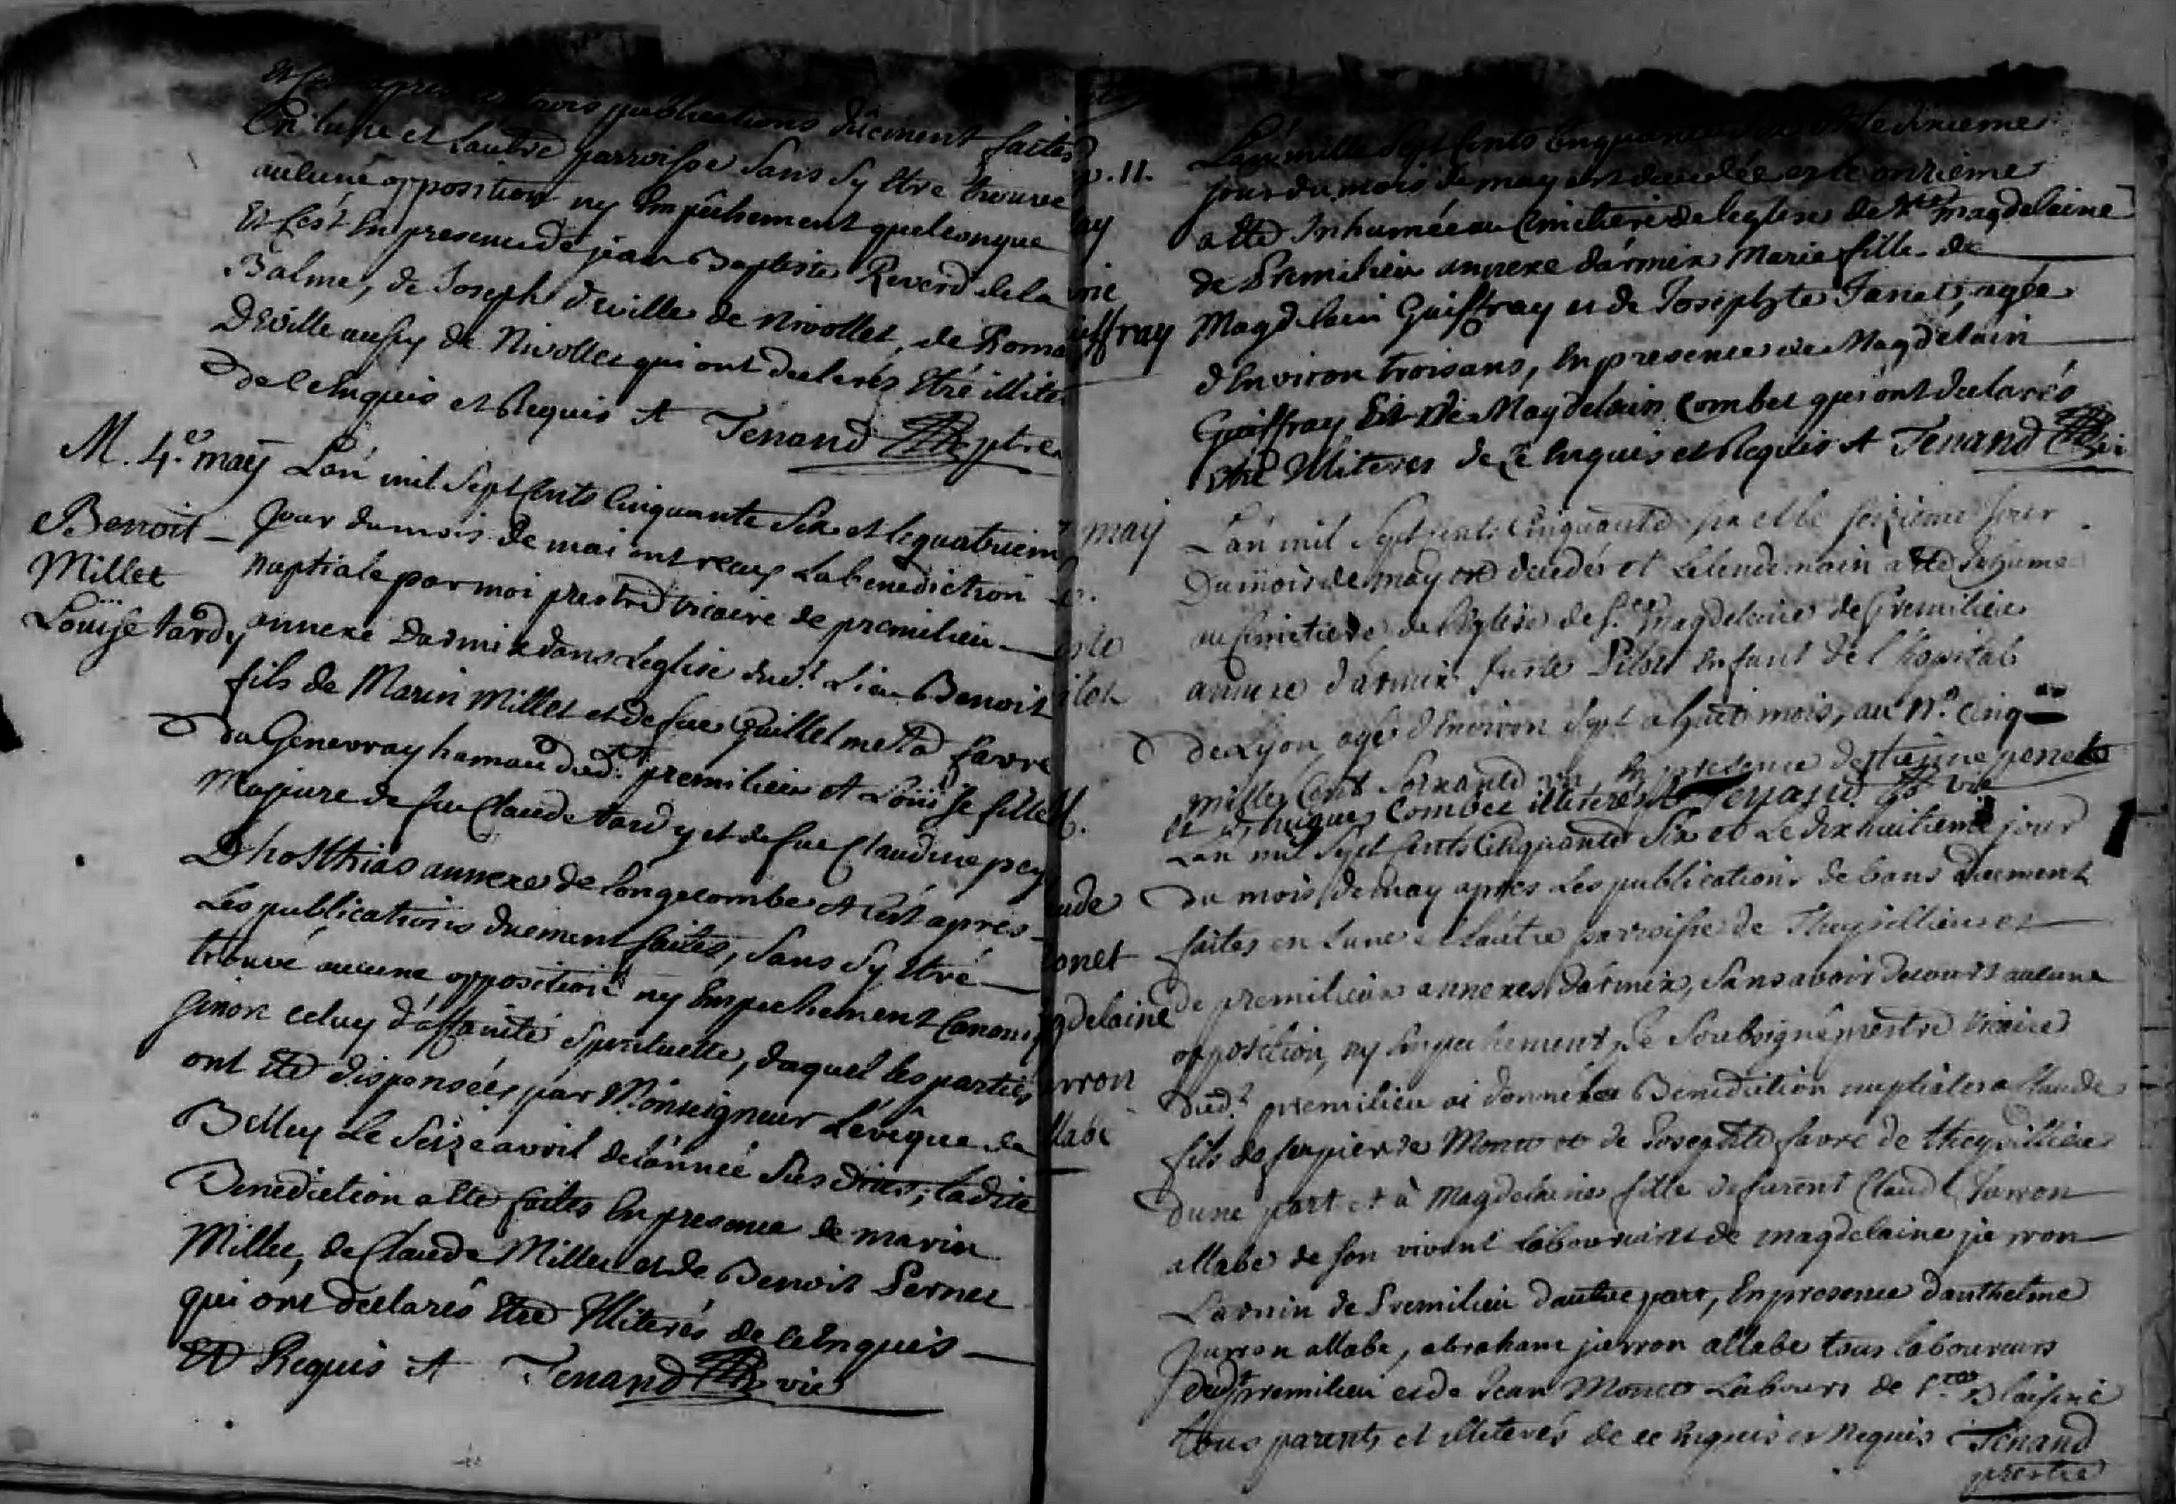 trois publications dûement faites
En l'une et l'autre parroisse sans s'y être trouvé
aucune opposition ny Empêchement quelconque
Et c'est En presence de jean Baptiste Reverd de la
Balme, de Joseph Deville de Nivollet, de Roma
Deville aussy de Nivollet qui ont declarés Etre illite
de ce Enquis et Requis A Tenand ptre
M. 4.e may L'an mil Sept Cents Cinquante Six et le quatriem
Benoit - jour du mois de mai ont reçu La benediction
Millet nuptiale par moi prestre vicaire de premilieu
Louïse tardy annexe d'armix dans L'eglise dud.t Lieu Benoit
fils de Marin Millet et de fue Guillelmette favre
du Genevray hamau dud.t premilieu et Louïse fille
Majeure de fu Claude tardy et de fue Claudine pey
D'hosthias annexe de longecombe et c'est après
Les publications duement faites, sans s'y être
trouvé aucune opposition ny Empechement Canoniq
sinon celuy d'affinité spirituelle, duquel les parties
ont été dispensées par Monseigneur L'évêque de
Belley Le Seize avril de l'année susdite, ladite
Benediction a été faites En presence de marin
Millet, de Claude Millet et de Benoit Pernet
qui ont déclarés être Illiterés de ce Enquis
Et Requis A Tenand vic
L'an mille Sept Cents Cinquante six et le dixieme
p. 11. jour du mois de may est decedée et le onzieme
ay a été Inhumée au Cimetiere de leglise de Ste magdelaine
de Premilieu annexe d'armix Marie fille de
rie Magdelain Guiffray et de Josephte Janet, agée
iffray d'Environ trois ans, En presence de Magdelain
Guiffray et de Magdelain Combet qui ont declarés
être Illiterés de ce Enquis et Requis A Tenand vic
may L'an mil Sept cents Cinquante six et le seizieme jour
Du mois de may est decedé et Le lendemain a été Inhumé
au Cimetiere de l'Eglise de Ste Magdelaine de Premilieu
annexe d'armix Juste Pilot Enfant de l'hopital
ilot de Lyon, agé d'Environ Sept a huit mois, au N.o Cinq
mille Cent Soixante un, En presence destienne penet
et Combet illiterés A Tenand vic
L'an mil Sept Cents Cinquante Six et Le dix huitieme jour
ude du mois de may après Les publications de bans duement
onet faites en l'une et l'autre parroisse de Theysillieu et
gdelaine de premilieu annexes d'armix, sans avoir decouvert aucune
opposition, ny Empechement Je Soubsigné prestre vicaire
rron dud.t premilieu ai donné la Benediction nuptiale a Claude
llabe fils de fu pierre Monet et de Josephte favre de theysillieu
d'une part et à Magdelaine fille de furent Claude Jarron
allabe de son vivant laboureur et de magdelaine jarron
Larnin de Premilieu d'autre part, En presence d'anthelme
Jarron allabe, abraham jarron allabe tous laboureurs
dud.t premilieu et de Jean Monet Laboure de S.te Blaisine
tous parents et illiterés de ce Enquis et Requis Tenand
prestre